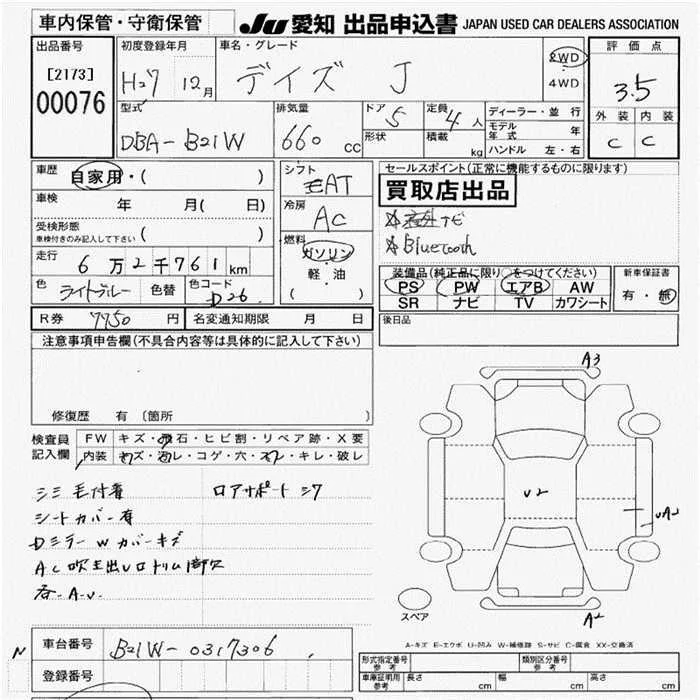 車内保管・守衛保管
JU 愛知 出品申込書 JAPAN USED CAR DEALERS ASSOCIATION
出品番号
[2173]
00076
初度登録年月
H27 12月
車名・グレード
デイズ J
2WD
4WD
評価点
3.5
外装 内装
C C
型式
DBA-B21W
排気量
660 CC
ドア
5
形状
定員
4人
積載
kg
ディーラー・並行
モデル年式 年
ハンドル 左・右
車歴
自家用・( )
車検 年 月( 日)
受検形態
車検付きのみ記入して下さい ( )
走行
6万2千761km
色
ライトブルー
色替
色コード
D26
シフト
AT
冷房
AC
燃料
ガソリン
軽・油
( )
セールスポイント(正常に機能するものに限ります)
買取店出品
ナビ
Bluetooth
装備品(純正品に限り○をつけてください)
PS PW エアB AW
SR ナビ TV カワシート
新車保証書
有・無
R券 7750 円 名変通知期限 月 日
後日品
注意事項申告欄(不具合内容等は具体的に記入して下さい)
修復歴 有 〔箇所
検査員記入欄
FW キズ・飛石・ヒビ割・リペア跡・X要
内装 キズ・汚レ・コゲ・穴・スレ・キレ・破レ
シミ 毛付着 ロアサポート シワ
シートカバー有
Dミラー W カバーキズ
AC吹 出
各A.U.
A3
U2
UA2
A2
スペア
A-キズ E-エクボ U-凹み W-補修跡 S-サビ C-腐食 XX-交換済
N
車台番号 B21W-0317306
登録番号
形式指定番号 参考
類別区分番号 参考
車庫証明用 参考
長さ cm 幅 cm 高さ cm